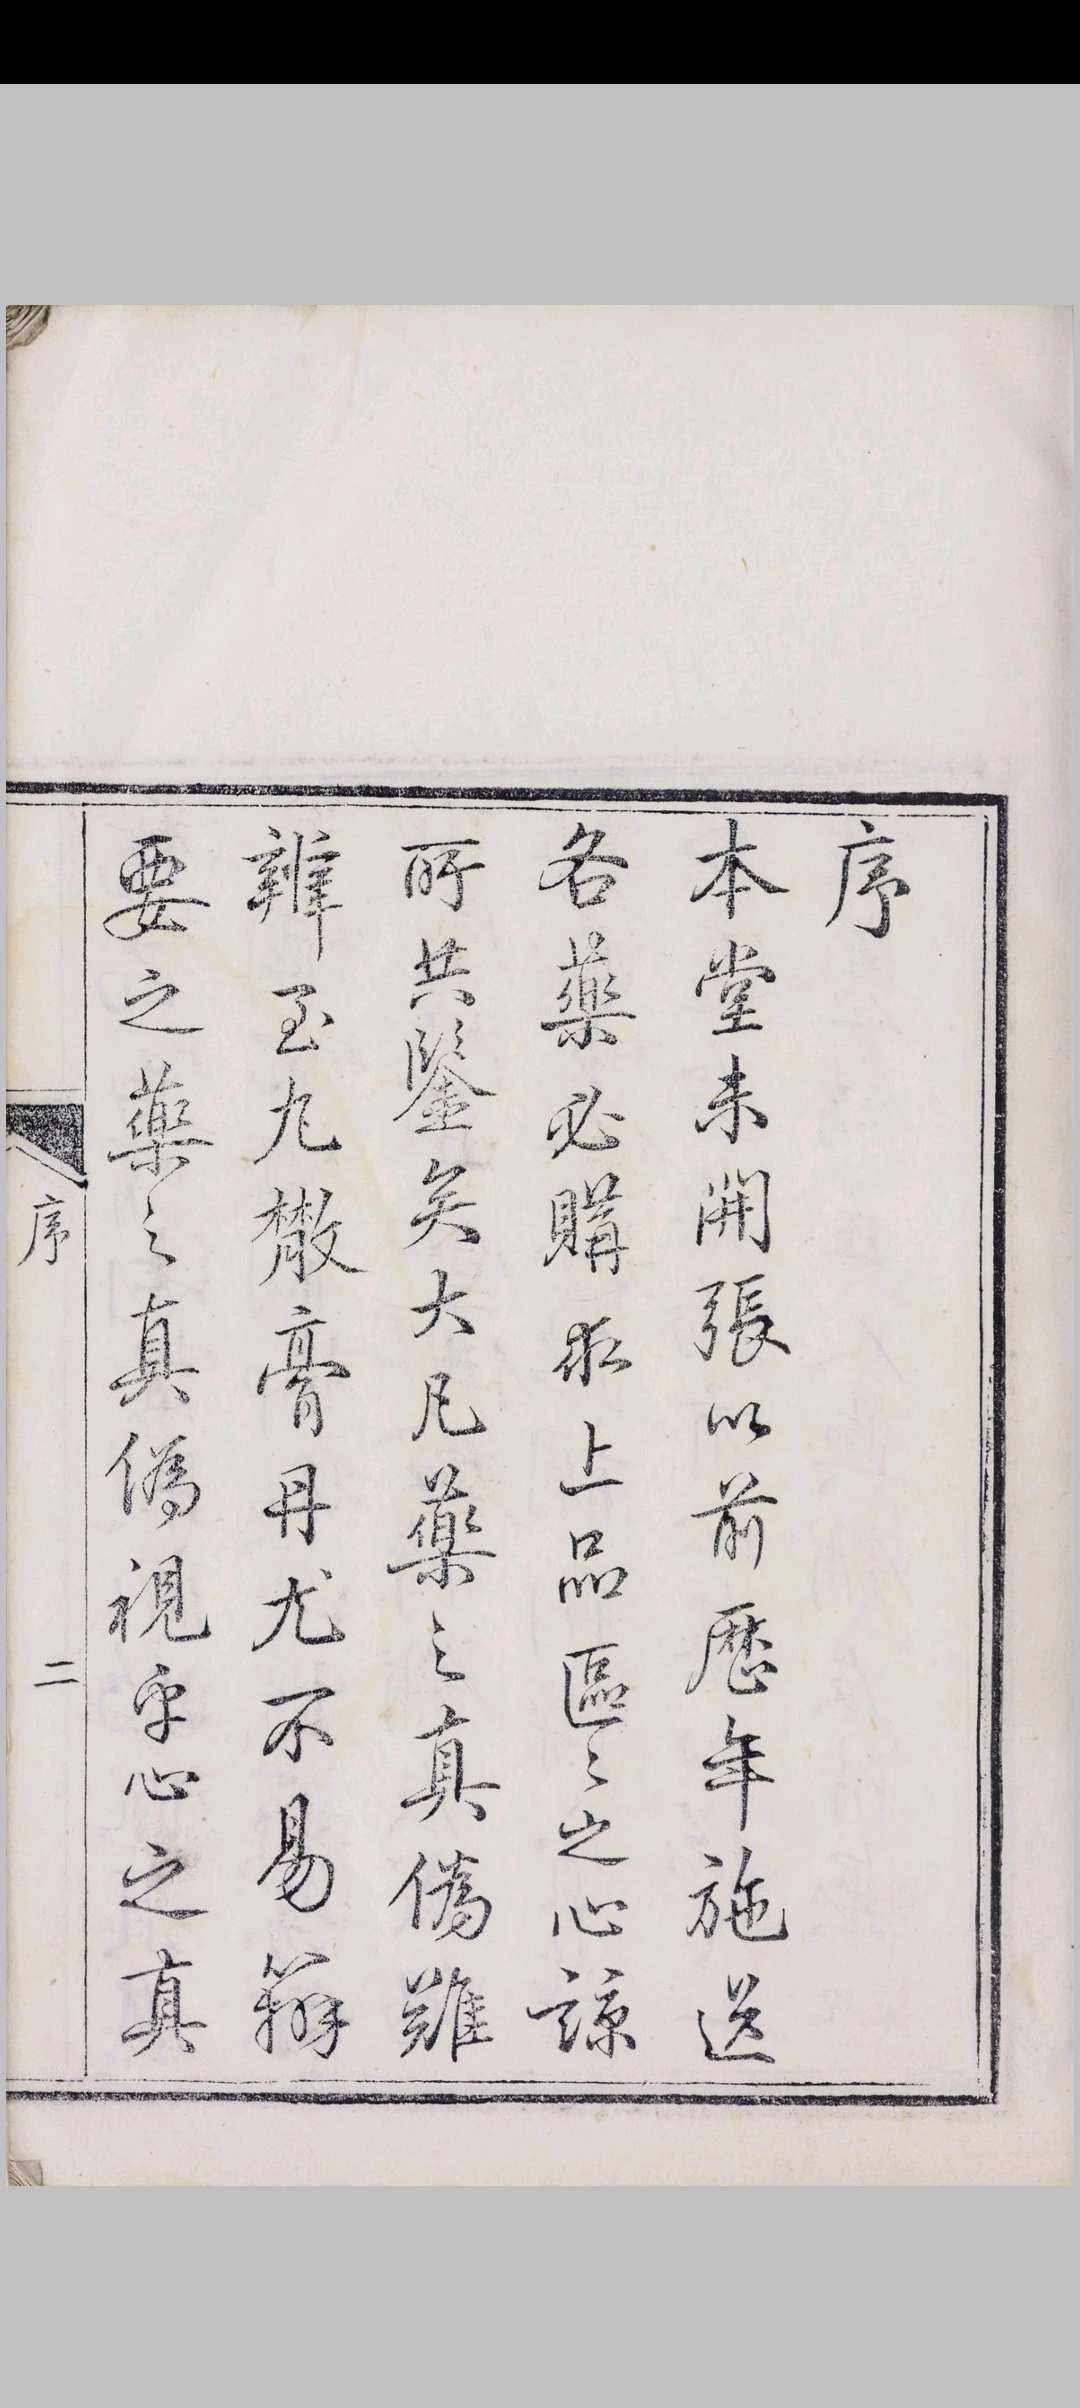 序
本堂未開張以前歷年施送
各藥必購求上品區〻之心諒
所共鑒矣大凡藥之真偽難
辨至丸散膏丹尤不易辨
要之藥之真偽視乎心之真
序
二